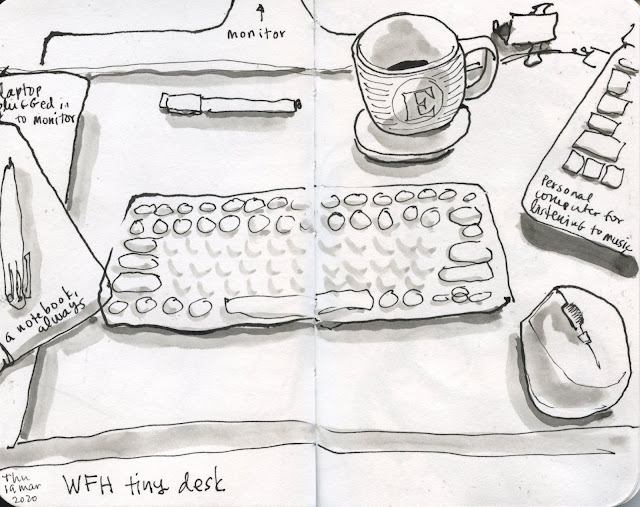 monitor
laptop
plugged in
to monitor
E
Personal
computer for
listening to music
a notebook,
always
Thu
19 mar
2020
WFH tiny desk